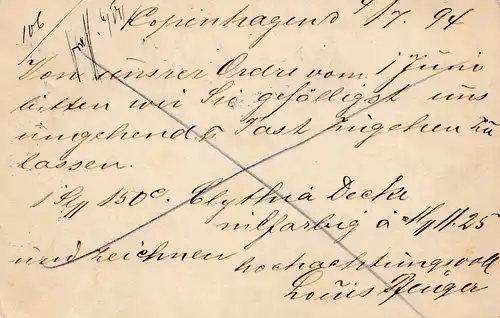 106
Copenhagend 4/7. 94
Von unsrer Ordre vom 1 Juni
bitten wir Sie gefälligst uns
umgehends Fast zugehen zu
lassen.
150c. Clythia Decke
nilfarbig à M 11.25
und zeichnen
hochachtungsvoll
Louis